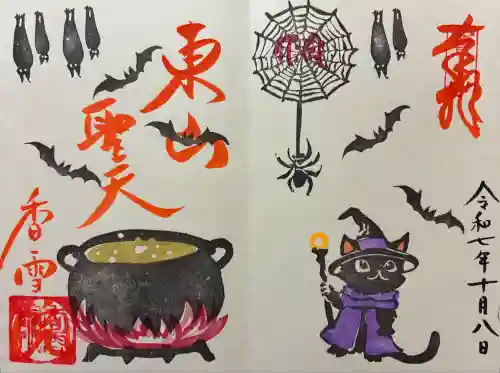 奉拝
令和七年十月八日
東山
聖天
香雪